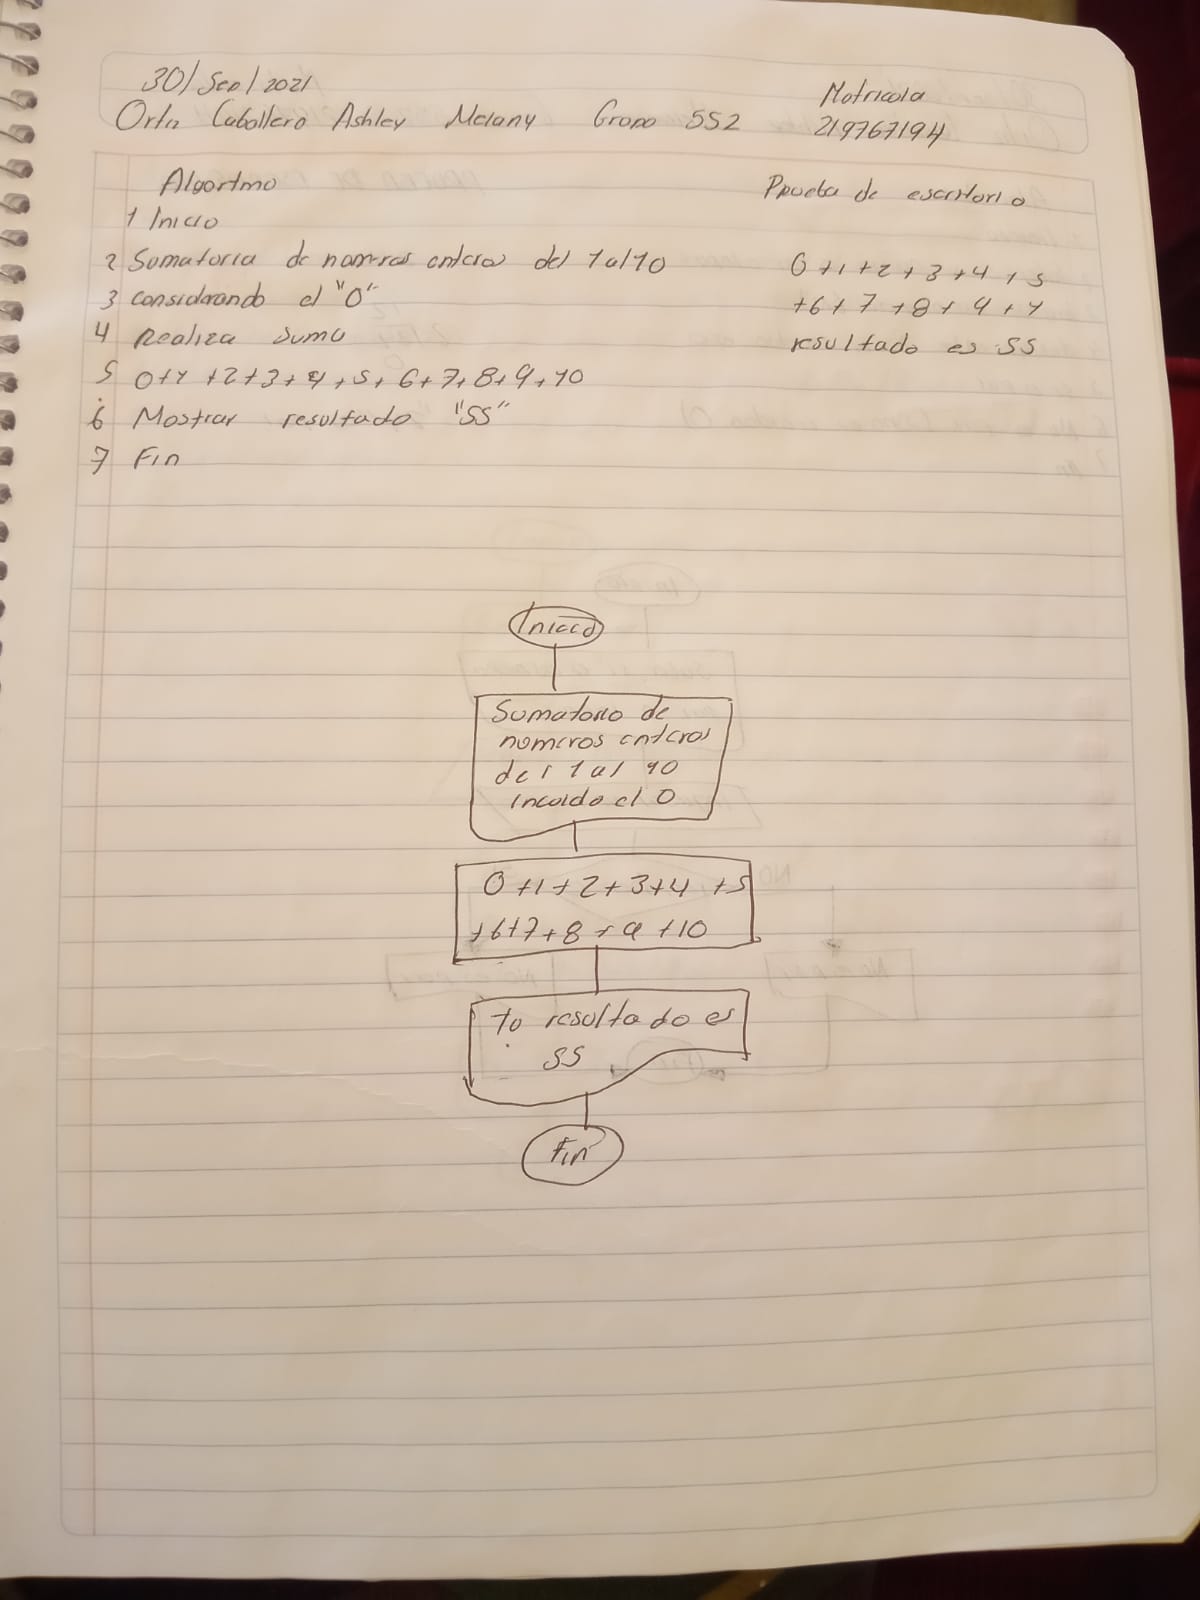 30/Sep/2021
Matricola
Ortiz Caballero Ashley Melany Grupo 552
219767194
Algortmo
Prueba de escritorio
1 Inicio
2 Sumatoria de numeros enteros del 1 al 10
3 considerando el "0"
4 Realiza suma
5 0+1+2+3+4+5+6+7+8+9+10
6 Mostrar resultado "55"
7 Fin
0+1+2+3+4+5
+6+7+8+9+1
resultado es 55
Inicio
Sumatorio de
numeros enteros
del 1 al 10
incuido el 0
0+1+2+3+4+5
+6+7+8+9+10
tu resultado es
55
Fin